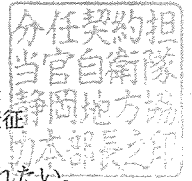 分任契約担
当官自衛隊
静岡地方協
力本部長之印
征
れたい。